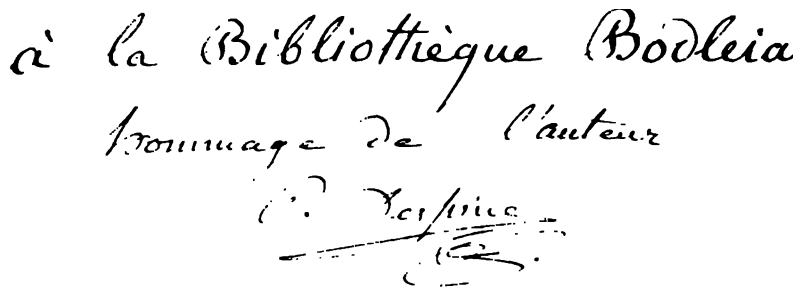 à la Bibliothèque Bodleia
hommage de l'auteur
P. Despine